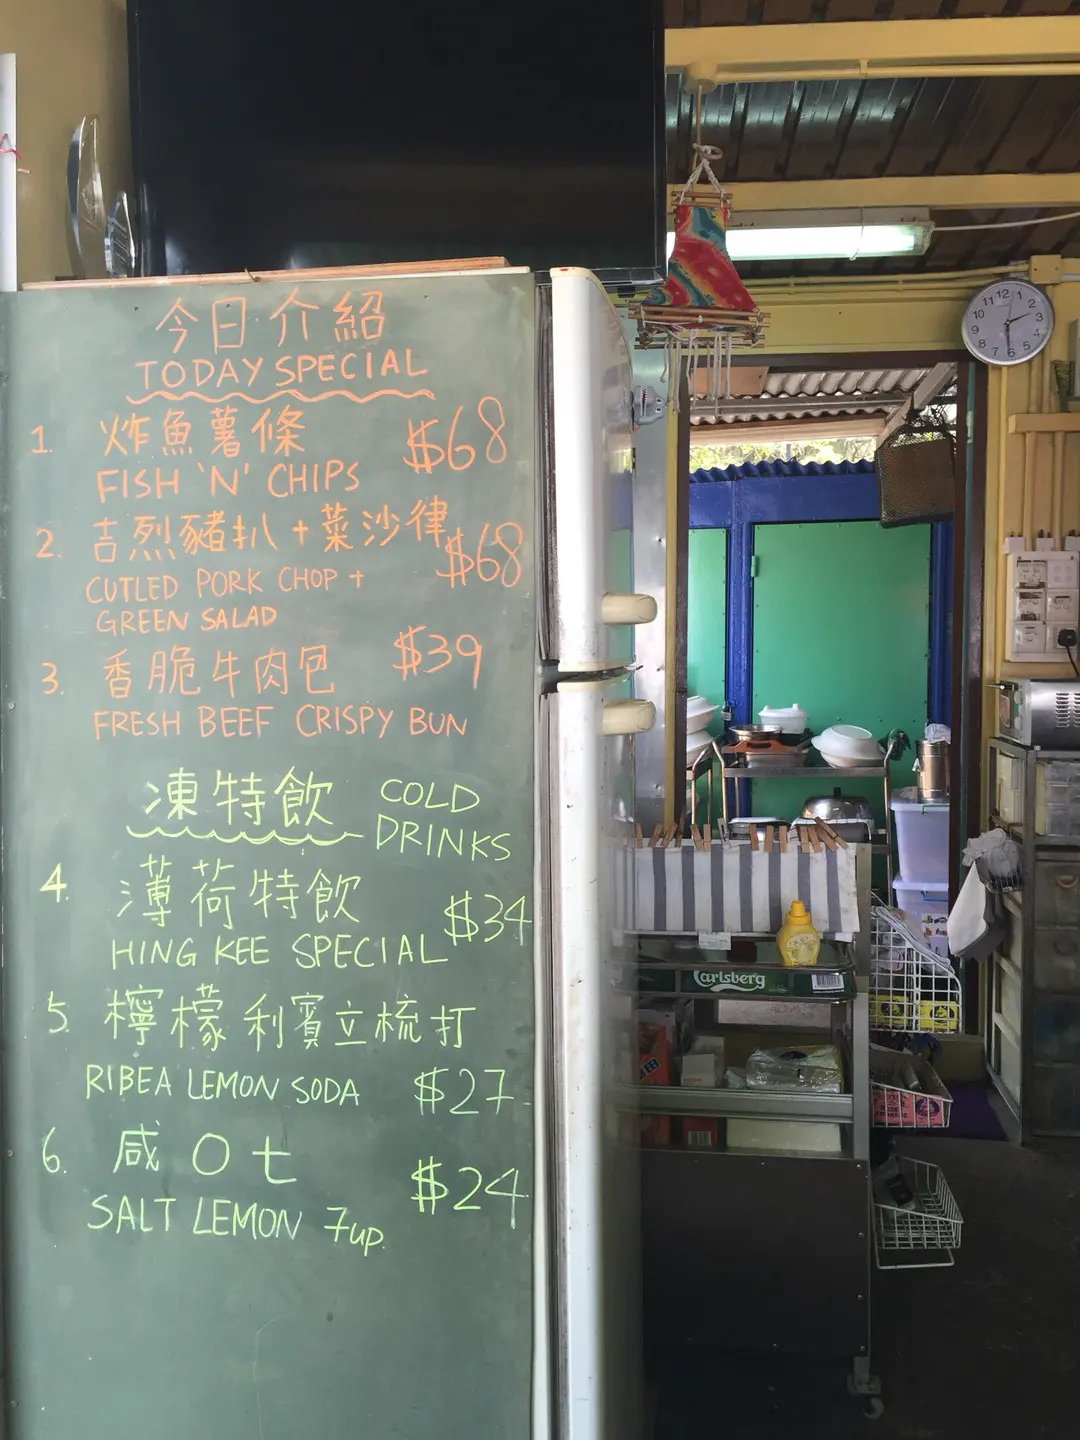 今日介紹
TODAY SPECIAL
1. 炸魚薯條 $68
FISH 'N' CHIPS
2. 吉烈豬扒+菜沙律 $68
CUTLED PORK CHOP +
GREEN SALAD
3. 香脆牛肉包 $39
FRESH BEEF CRISPY BUN
凍特飲 COLD
DRINKS
4. 薄荷特飲 $34
HING KEE SPECIAL
5. 檸檬利賓立梳打
RIBEA LEMON SODA $27
6. 咸O七 $24
SALT LEMON 7up
Carlsberg
12 1 2 3 4 5 6 7 8 9 10 11